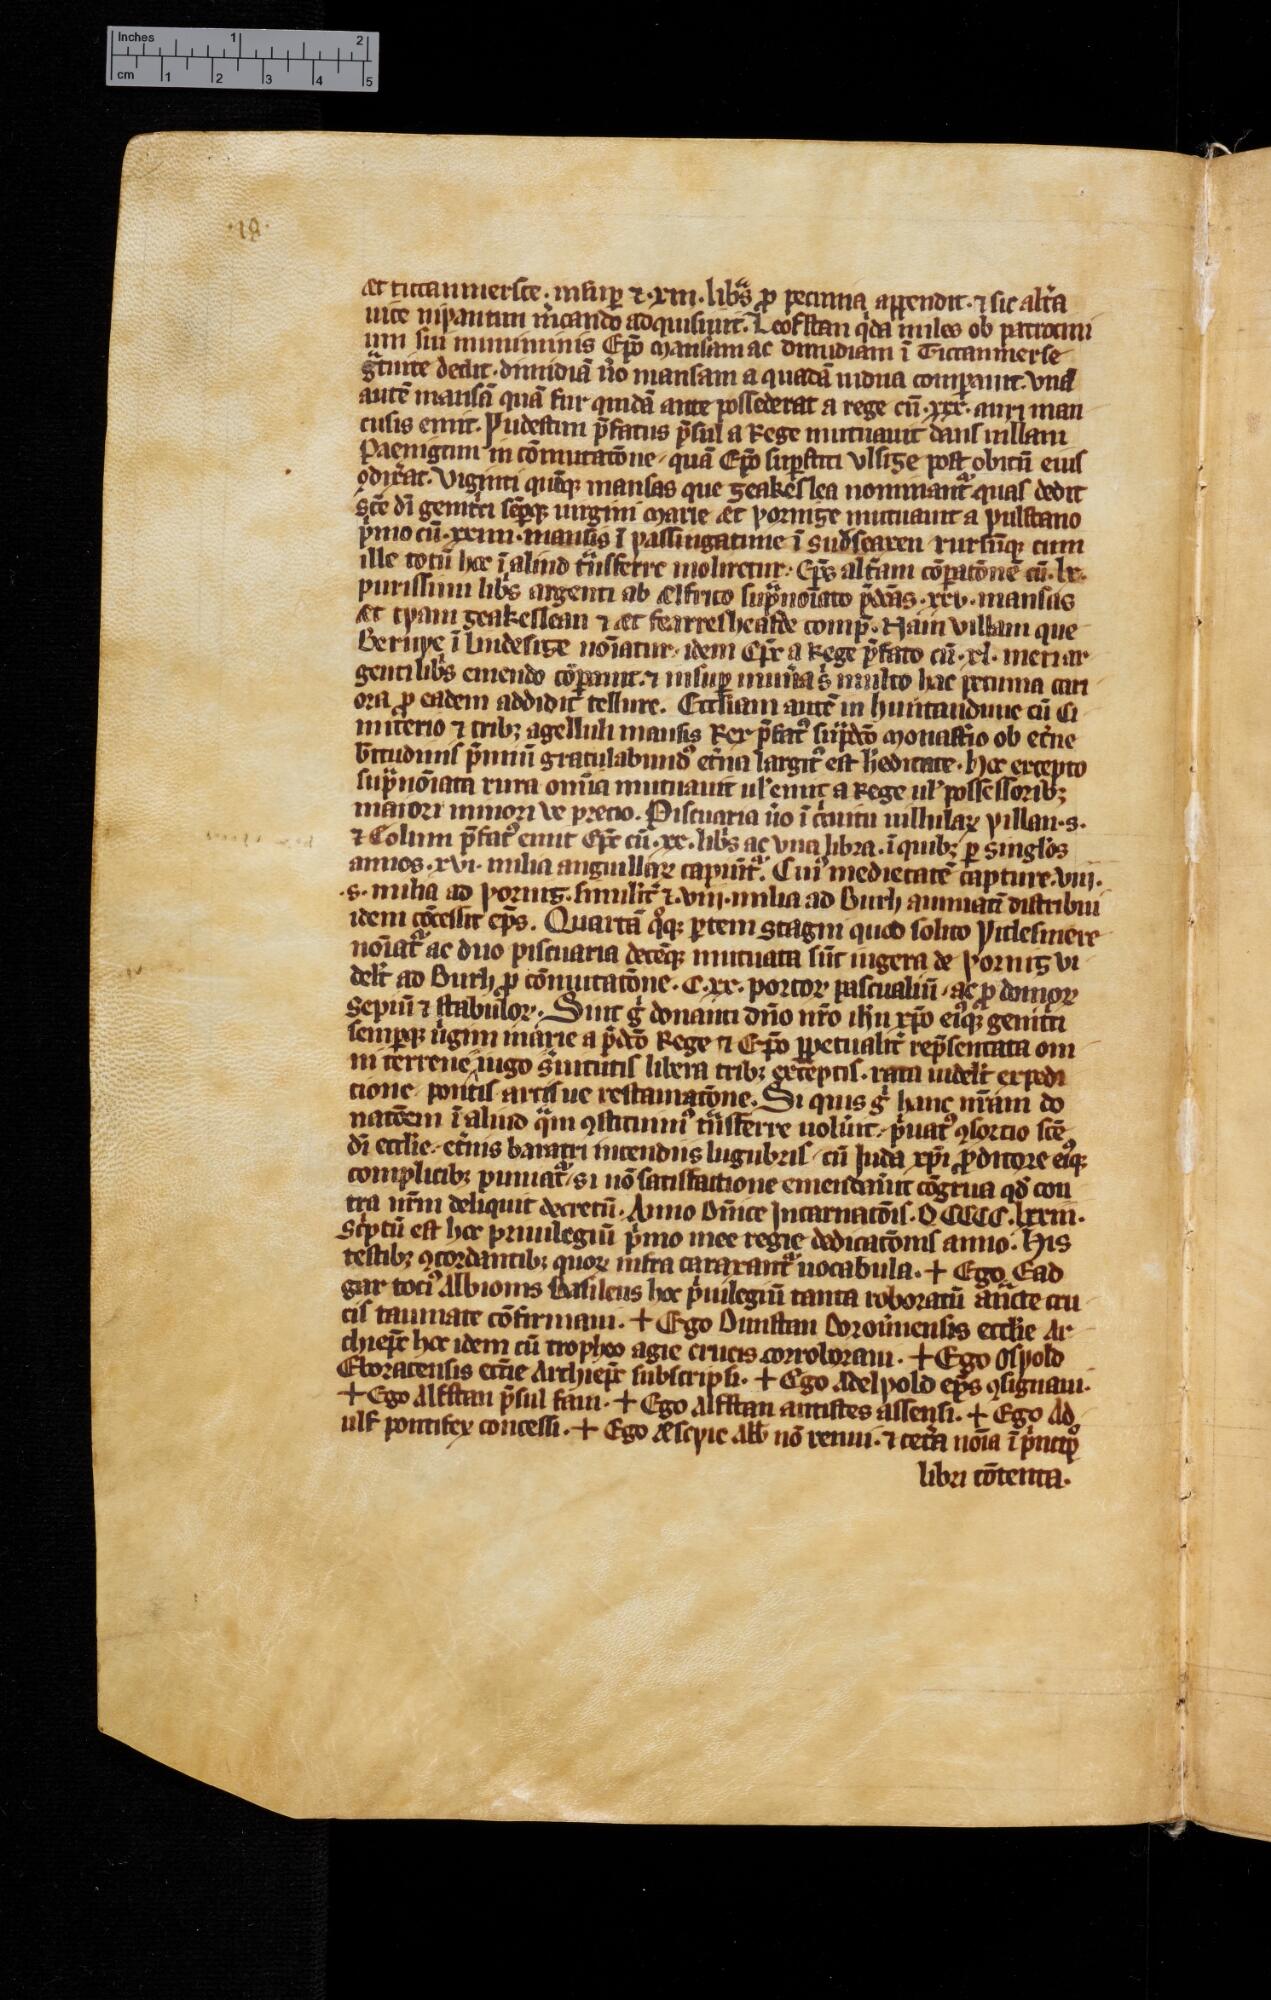 Inches 1 2
cm 1 2 3 4 5
·18·
æt ticcanmersce · insuꝑ ⁊ · xiii · libs̃ ꝓ pecunia appendit · ⁊ sic alt̃a
uice nẏpantun m̃cando adquisiuit. Leofstan q̃dã miles ob patrocini
um sui muniminis Ep̃o mansam ac dimidiam ĩ Ticcanmerse
g̃tuite dedit · dimidiã ũo mansam a quadã uidua comparauit. vnã
autẽ mansã quã fur quidã ante possederat a rege cũ · xxx · auri man
cusis emit. Ƿudestun p̃fatus p̃sul a Rege mutuauit dans uillam
Paenigtun in cõmutatõne · quã Ep̃o suꝑstiti vlsige post obitũ eius
ꝯdix̃at. Viginti quinq̃ mansas que geakeslea nominant̃ quas dedit
sc̃e dĩ genit̃ci sẽꝑq̃ uirgini marie æt ƿornige mutuauit a ƿulstano
p̃mo cũ · xxiiii · mansis ĩ ƿassingatune ĩ sudsexen rursũq̃ cum
ille totũ hoc ĩ aliud t̃nsferre moliretur · Ep̃s alt̃am cõꝑatõnẽ cũ · lx ·
purissimi libs̃ argenti ab ælfrico sup̃noĩato p̃dc̃as · xxv · mansas
æt tƿam geakeslean ⁊ æt fearresheafde comp̃. Nam villam que
Beruƿc ĩ lindesige noĩatur · idem Ep̃c a Rege p̃fato cũ · xl · meri ar
genti libs̃ emendo cõꝑauit · ⁊ insuꝑ mun̾a s̾ multo hac pecunia cari
ora ꝓ eadem addidit tellure. Eccliam autẽ in huntandune cũ Ci
miterio ⁊ tribȝ agelluli mansis Rex p̃fat⁹ sup̃dc̃o monast̾io ob et̾ne
b̃titudinis p̃miũ gratulabund⁹ et̾na largit⁹ est h̾editate · hoc excepto
sup̃nõiata rura om̃ia mutuauit ul̾ emit a Rege ul̾ possessoribȝ
maiori minori ve precio. Piscuaria ũo ĩ c̾cuitu uillulaꝝ ƿillan · s ·
⁊ Colum p̃fat⁹ emit Ep̃c cũ · xx · libs̃ ac vna libra · ĩ quibȝ ꝑ singlõs
annos · xvi · milia anguillaꝝ capiũt̾. Cui⁹ medietatẽ capture · viii ·
· s · milia ad ƿornig · similit̾ ⁊ · viii · milia ad Burh animatĩ distribui
idem cõcessit ep̃s. Quartã q̾q̃ ꝑtem stagni quod solito Ƿitlesmere
noĩat̾ ac duo piscuaria decẽq̃ mutuata sũt iugera de ƿornig vi
delȝ ad Burh ꝓ cõmutatõne · C · xx · porcoꝝ pascualiũ · ac ꝓ domoꝝ
sepiũ ⁊ stabuloꝝ · Sint g̾ donanti dño nr̃o ihũ xp̃o ei⁹q̃ genit̃ci
semꝑq̃ ũgini marie a p̃dc̃o Rege ⁊ Ep̃o ꝑpetualit̾ rep̃sentata om
ni terrene iugo s̾uitutis libera tribȝ exceptis · rata uidelȝ expedi
tione · pontis arcis ue restauratõne. Si quis g̾ hanc nr̃am do
natõem ĩ aliud q̾m ꝯstituim⁹ t̃nsferre uolũit · p̾uat⁹ ꝯsortio sc̃e
dĩ ecclie · et̾nis baratri incendiis lugubris · cũ Juda xp̃i ꝓditore ei⁹q̃
complicibȝ puniat̾ · si nõ satisfactione emendau̾it cõgrua qđ con
tra nr̃m deliquit decretũ · Anno Dñice Incarnatõis · D CCCC · lxxiii ·
Sc̾ptũ est hoc priuilegiũ p̾mo mee regie dedicatõnis anno · His
testibȝ ꝯcordantibȝ quoꝝ infra caraxant̾ uocabula · + Ego Ead
gar toci⁹ Albionis Basileus hoc p̾uilegiũ tanta roboratũ auct̾e cru
cis taumate cõfirmaui. + Ego Dunstan Dorou̾nensis ecclie Ar
chiep̃c hoc idem cũ tropheo agie crucis corroboraui. + Ego Osƿold
Eboracensis ecc̃ie Archiep̃c subscripsi. + Ego Adelƿold ep̃s ꝯsignaui.
+ Ego Alfstan p̃sul faui. + Ego Alfstan antistes assensi. + Ego Ad
ulf pontifex concessi. + Ego Æscƿic Abb̃ nõ renui · ⁊ cet̾a nõia ĩ p̾ncip⁹
libri cõtenta.